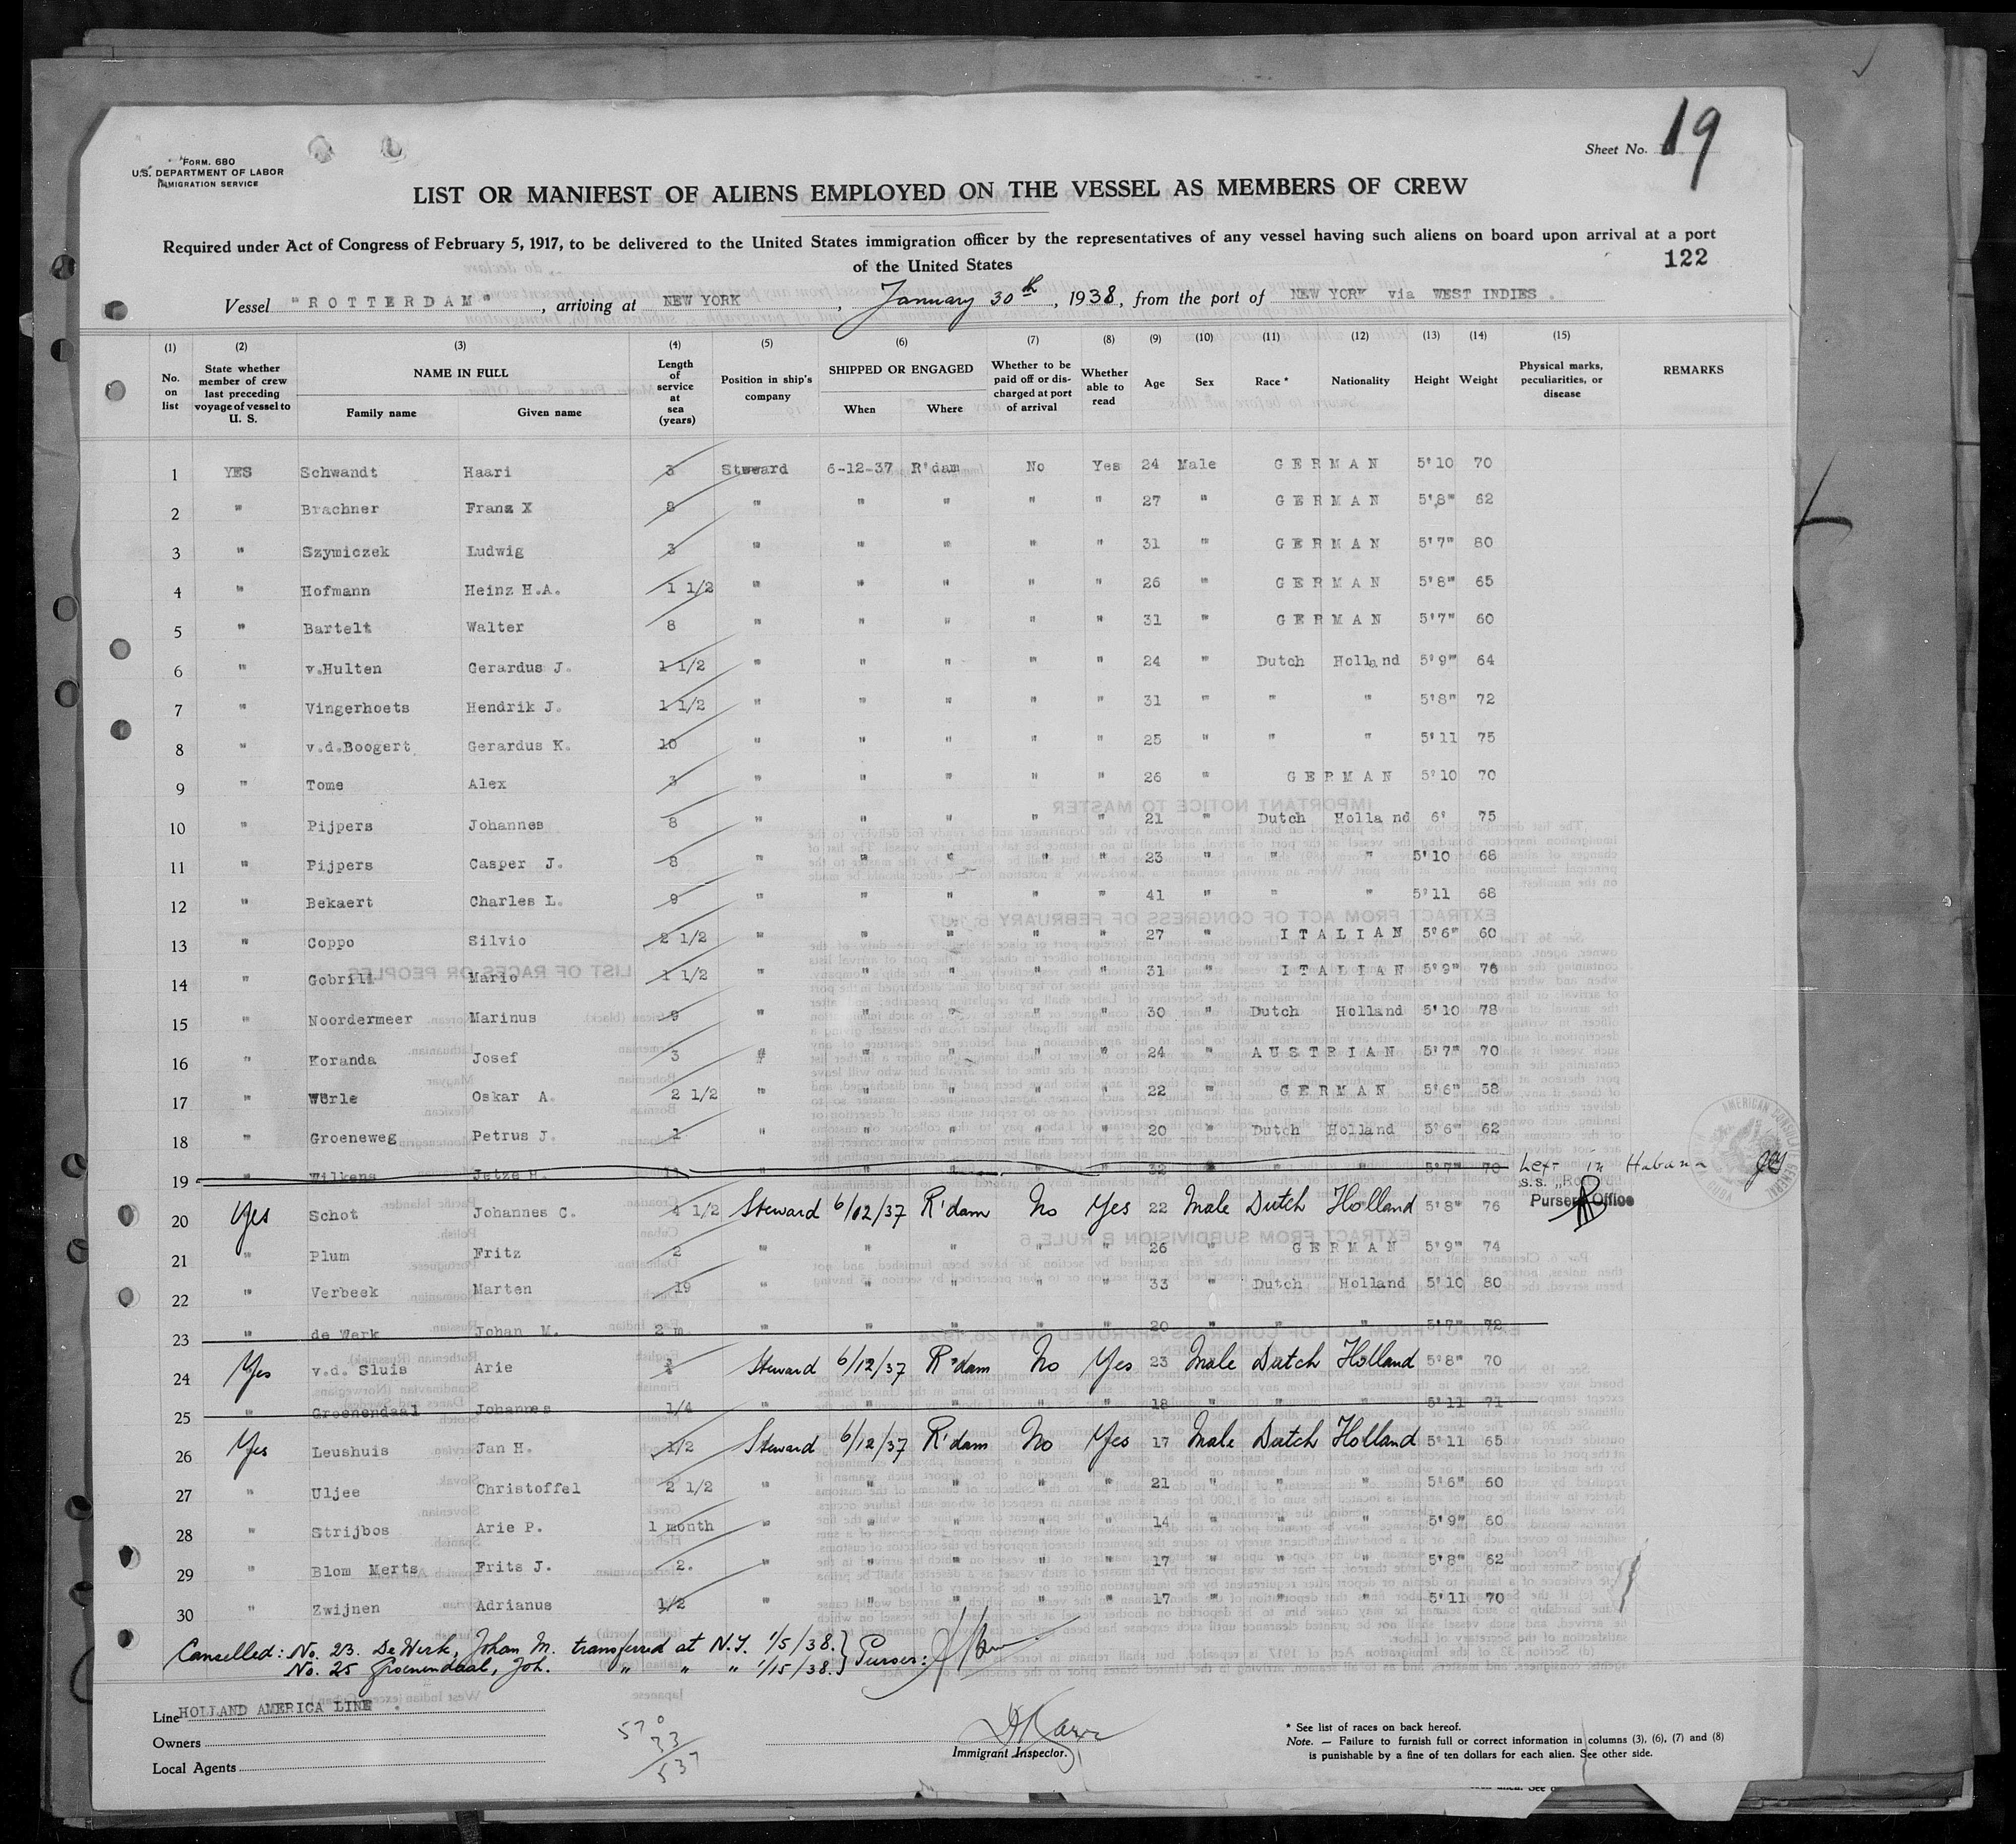 19
Sheet No.
FORM. 680
U.S. DEPARTMENT OF LABOR
IMMIGRATION SERVICE
LIST OR MANIFEST OF ALIENS EMPLOYED ON THE VESSEL AS MEMBERS OF CREW
Required under Act of Congress of February 5, 1917, to be delivered to the United States immigration officer by the representatives of any vessel having such aliens on board upon arrival at a port
of the United States
122
Vessel "ROTTERDAM", arriving at NEW YORK, January 30th, 1938, from the port of NEW YORK via WEST INDIES.
(1) (2) (3) (4) (5) (6) (7) (8) (9) (10) (11) (12) (13) (14) (15)
No. on list | State whether member of crew last preceding voyage of vessel to U. S. | NAME IN FULL Family name Given name | Length of service at sea (years) | Position in ship's company | SHIPPED OR ENGAGED When Where | Whether to be paid off or discharged at port of arrival | Whether able to read | Age | Sex | Race * | Nationality | Height | Weight | Physical marks, peculiarities, or disease | REMARKS
1 YES Schwandt Haari 3 Steward 6-12-37 R'dam No Yes 24 Male GERMAN 5'10 70
2 " Brachner Franz X 8 " " " " " 27 " GERMAN 5'8" 62
3 " Szymiczek Ludwig 3 " " " " " 31 " GERMAN 5'7" 80
4 " Hofmann Heinz H.A. 1 1/2 " " " " " 26 " GERMAN 5'8" 65
5 " Bartelt Walter 8 " " " " " 31 " GERMAN 5'7" 60
6 " v.Hulten Gerardus J. 1 1/2 " " " " " 24 " Dutch Holland 5'9" 64
7 " Vingerhoets Hendrik J. 1 1/2 " " " " " 31 " " " 5'8" 72
8 " v.d.Boogert Gerardus K. 10 " " " " " 25 " " " 5'11 75
9 " Tome Alex 3 " " " " " 26 " GERMAN 5'10 70
10 " Pijpers Johannes 8 " " " " " 21 " Dutch Holland 6' 75
11 " Pijpers Casper J. 8 " " " " " 23 " " " 5'10 68
12 " Bekaert Charles L. 9 " " " " " 41 " " " 5'11 68
13 " Coppo Silvio 2 1/2 " " " " " 27 " ITALIAN 5'6" 60
14 " Gobrill Mario 1 1/2 " " " " " 31 " ITALIAN 5'9" 76
15 " Noordermeer Marinus 9 " " " " " 30 " Dutch Holland 5'10 78
16 " Koranda Josef 3 " " " " " 24 " AUSTRIAN 5'7" 70
17 " Würle Oskar A. 2 1/2 " " " " " 22 " GERMAN 5'6" 58
18 " Groeneweg Petrus J. 1 " " " " " 20 " Dutch Holland 5'6" 62
19 " Wilkens Jetze H. " " " " " 32 " " " 5'7" 70 Left in Habana
s.s. „Ro
Purser's Office
20 Yes Schot Johannes C. 4 1/2 Steward 6/12/37 R'dam No Yes 22 Male Dutch Holland 5'8" 76
21 " Plum Fritz 2 " " " " " 26 " GERMAN 5'9" 74
22 " Verbeek Marten 19 " " " " " 33 " Dutch Holland 5'10 80
23 " de Werk Johan M. 2 m. " " " " " 20 " " " 5'7" 72
24 Yes v.d. Sluis Arie Steward 6/12/37 R'dam No Yes 23 Male Dutch Holland 5'8" 70
25 " Groenendaal Johannes 1/4 " " " " " 18 " " " 5'11 71
26 Yes Leushuis Jan H. 1/2 Steward 6/12/37 R'dam No Yes 17 Male Dutch Holland 5'11 65
27 " Uljee Christoffel 2 1/2 " " " " " 21 " " " 5'6" 60
28 " Strijbos Arie P. 1 month " " " " " 14 " " " 5'9" 60
29 " Blom Merts Frits J. 2. " " " " " 17 " " " 5'8" 62
30 " Zwijnen Adrianus 1/2 " " " " " 17 " " " 5'11 70
Cancelled: No. 23. De Werk, Johan M. transferred at N.Y. 1/5/38.} Purser:
No. 25 Groenendaal, Joh. " " " 1/15/38.}
Line HOLLAND AMERICA LINE.
Owners
Local Agents
570
33
537
Immigrant Inspector.
* See list of races on back hereof.
Note. — Failure to furnish full or correct information in columns (3), (6), (7) and (8)
is punishable by a fine of ten dollars for each alien. See other side.